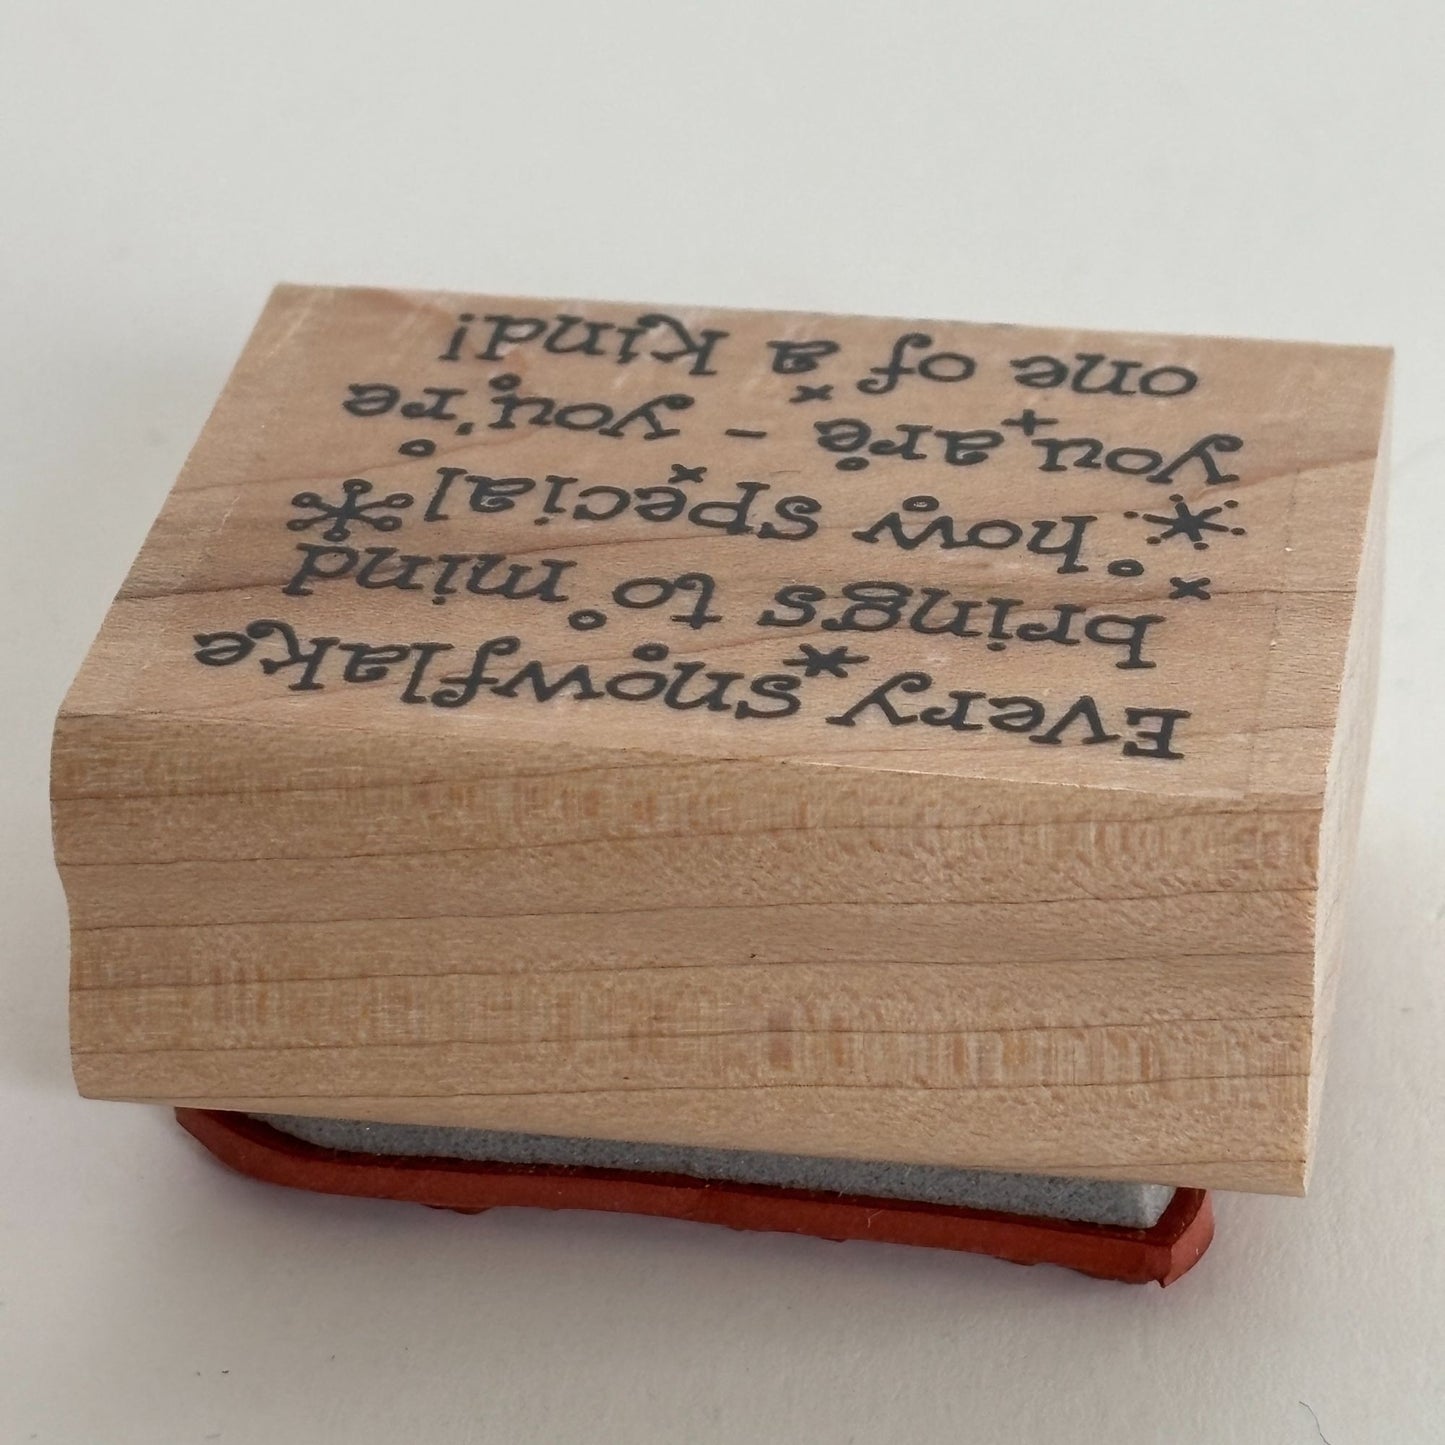 Every snowflake
brings to mind
how special
you are - you're
one of a kind!